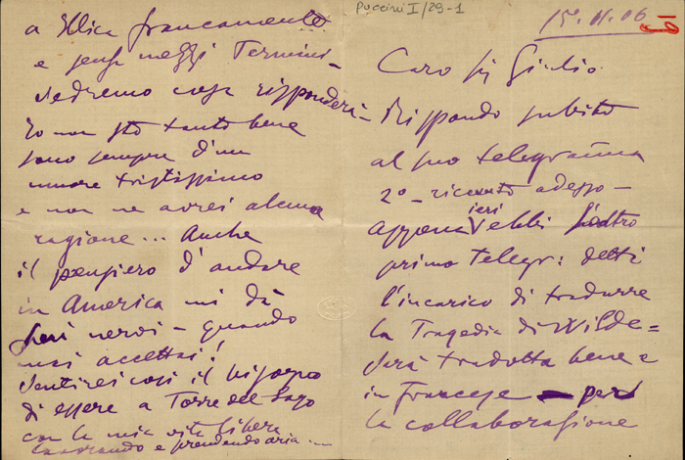 Puccini I/29-1
15.11.06
Caro Sig Giulio
Rispondo subito
al suo telegramma
2º - ricevuto adesso -
appena ieri ebbi l'altro
primo Telegr: detti
l'incarico di tradurre
la Tragedia di Wilde =
Sarà tradotta bene e
in francese - però
la collaborazione
a Illica francamente
e senza mezzi Termini -
Vedremo cosa risponderà -
Io non sto tanto bene
sono sempre d'un
umore tristissimo
e non ne avrei alcuna
ragione ... Anche
il pensiero d'andare
in America mi dà
seri nervi - quando
mai accettai!
Sentirei così il bisogno
di essere a Torre del Lago
con la mia vita libera
lavorando e prendendo aria ....